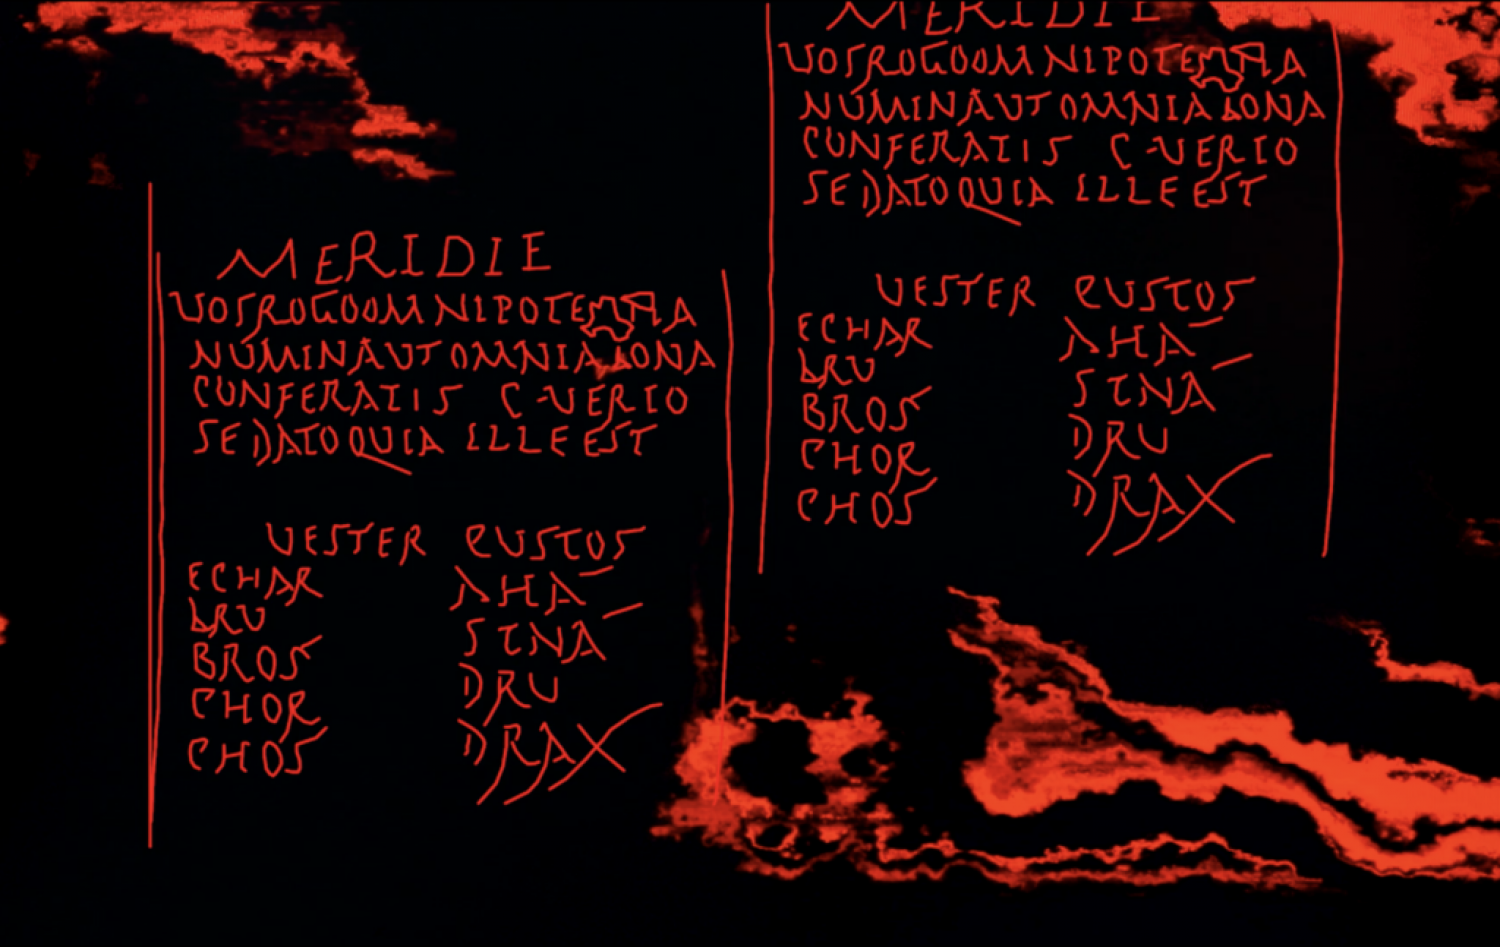 MERIDIE
VOSROGOOMNIPOTENTIA
NUMINAUTOMNIABONA
CONFERATIS C-VERIO
SEDATOQUIA ILLE EST
VESTER CUSTOS
ECHAR AHA
BRU STNA
BROS DRU
CHOR DRAX
CHOS
MERIDIE
VOSROGOOMNIPOTENTIA
NUMINAUTOMNIABONA
CONFERATIS C-VERIO
SEDATOQUIA ILLE EST
VESTER CUSTOS
ECHAR AHA
BRU STNA
BROS DRU
CHOR DRAX
CHOS